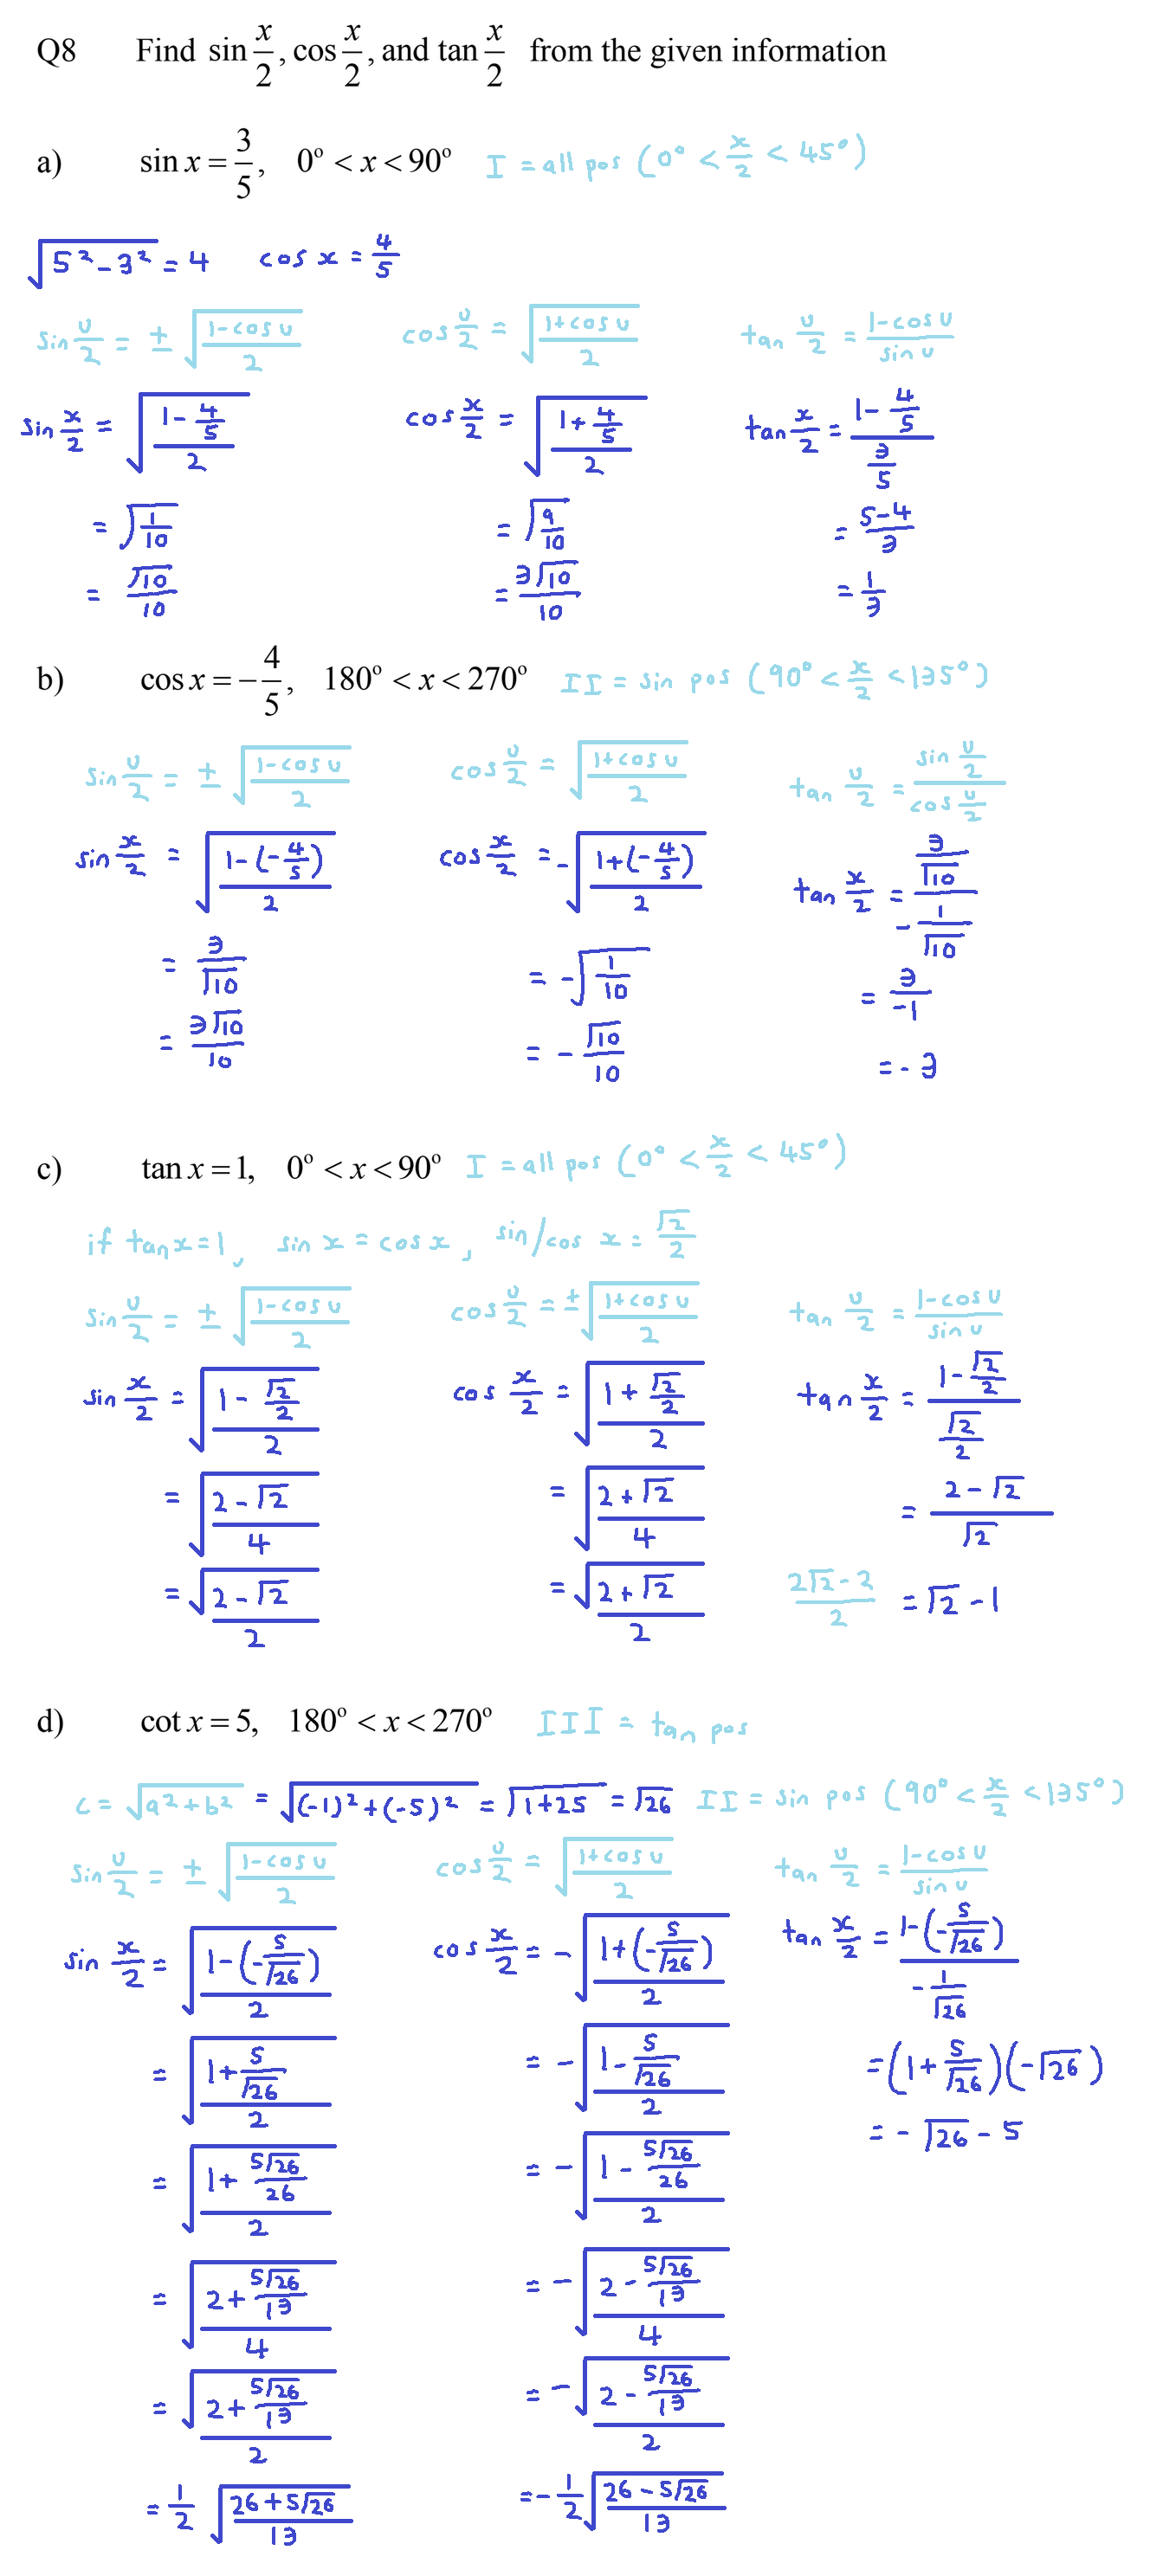 Q8 Find sin x/2, cos x/2, and tan x/2 from the given information
a) sin x = 3/5, 0° < x < 90° I = all pos (0° < x/2 < 45°)
√(5² - 3²) = 4 cos x = 4/5
sin u/2 = ± √((1-cos u)/2) cos u/2 = √((1+cos u)/2) tan u/2 = (1-cos u)/(sin u)
sin x/2 = √((1 - 4/5)/2) cos x/2 = √((1 + 4/5)/2) tan x/2 = (1 - 4/5)/(3/5)
= √(1/10) = √(9/10) = (5-4)/3
= √10/10 = 3√10/10 = 1/3
b) cos x = -4/5, 180° < x < 270° II = sin pos (90° < x/2 < 135°)
sin u/2 = ± √((1-cos u)/2) cos u/2 = √((1+cos u)/2) tan u/2 = (sin u/2)/(cos u/2)
sin x/2 = √((1-(-4/5))/2) cos x/2 = -√((1+(-4/5))/2) tan x/2 = (3/√10)/(-1/√10)
= 3/√10 = -√(1/10) = 3/-1
= 3√10/10 = - √10/10 = -3
c) tan x = 1, 0° < x < 90° I = all pos (0° < x/2 < 45°)
if tan x = 1, sin x = cos x, sin/cos x = √2/2
sin u/2 = ± √((1-cos u)/2) cos u/2 = ± √((1+cos u)/2) tan u/2 = (1-cos u)/(sin u)
sin x/2 = √((1 - √2/2)/2) cos x/2 = √((1 + √2/2)/2) tan x/2 = (1 - √2/2)/(√2/2)
= √((2-√2)/4) = √((2+√2)/4) = (2-√2)/√2
= √(2-√2)/2 = √(2+√2)/2 (2√2-2)/2 = √2 - 1
d) cot x = 5, 180° < x < 270° III = tan pos
c = √(a²+b²) = √((-1)²+(-5)²) = √(1+25) = √26 II = sin pos (90° < x/2 < 135°)
sin u/2 = ± √((1-cos u)/2) cos u/2 = √((1+cos u)/2) tan u/2 = (1-cos u)/(sin u)
sin x/2 = √((1-(-5/√26))/2) cos x/2 = -√((1+(-5/√26))/2) tan x/2 = (1-(-5/√26))/(-1/√26)
= √((1+5/√26)/2) = -√((1-5/√26)/2) = (1+5/√26)(-√26)
= √((1+5√26/26)/2) = -√((1-5√26/26)/2) = -√26 - 5
= √((2+5√26/13)/4) = -√((2-5√26/13)/4)
= √(2+5√26/13)/2 = -√(2-5√26/13)/2
= 1/2 √((26+5√26)/13) = -1/2 √((26-5√26)/13)